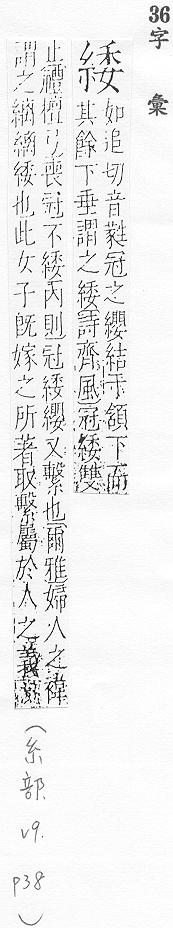 36字 彙
緌 如追切音蕤冠之纓結于頷下而
其餘下垂謂之緌詩齊風冠緌雙
止禮檀弓喪冠不緌內則冠緌纓又繫也爾雅婦人之褘
謂之縭縭緌也此女子既嫁之所著取繫屬於人之義
（糸部 v9. p38）